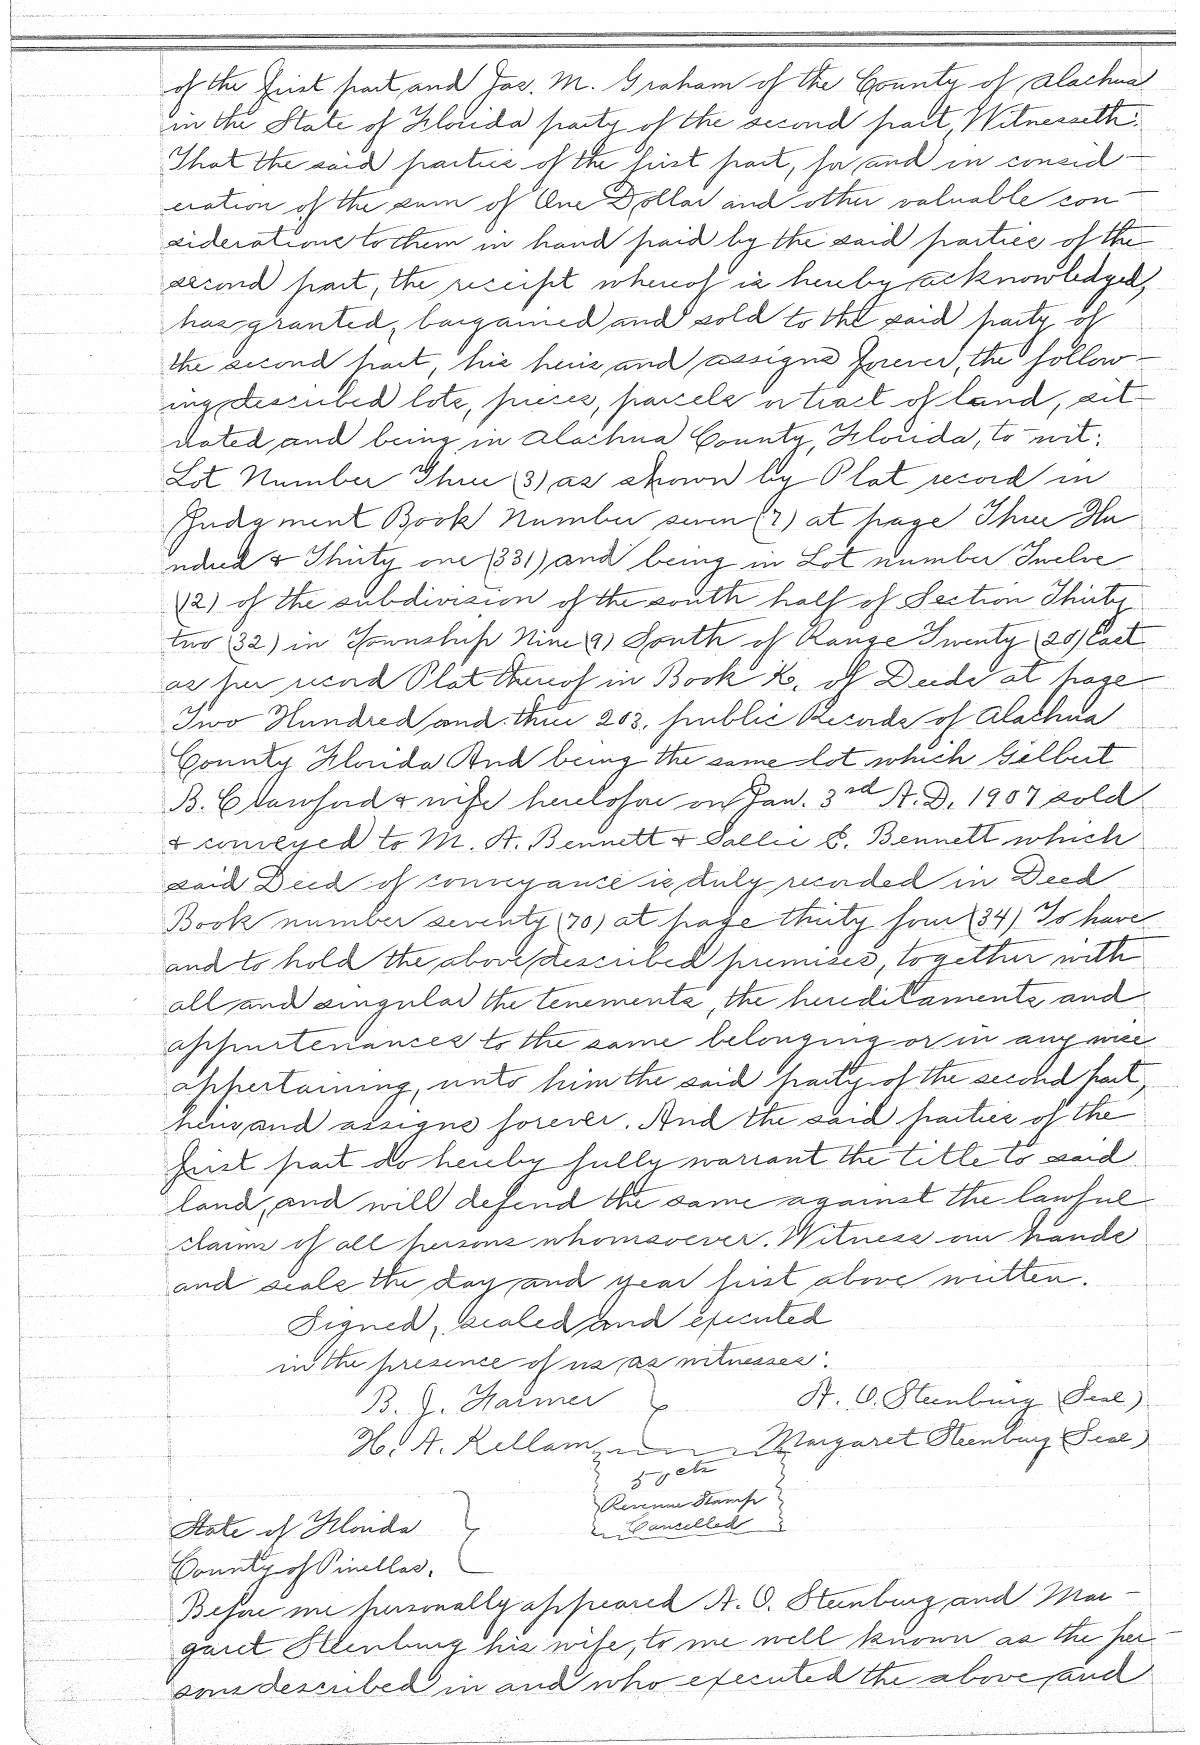 of the first part, and Jas. M. Graham of the County of Alachua
in the State of Florida party of the second part, Witnesseth:
That the said parties of the first part, for and in consid-
eration of the sum of One Dollar and other valuable con-
siderations to them in hand paid by the said parties of the
second part, the receipt whereof is hereby acknowledged,
has granted, bargained and sold to the said party of
the second part, his heirs and assigns forever, the follow-
ing described lots, pieces, parcels or tract of land, sit-
uated and being in Alachua County, Florida, to-wit:
Lot Number Three (3) as shown by Plat record in
Judgment Book Number seven (7) at page Three Hu
ndred & Thirty one (331) and being in Lot number Twelve
(12) of the subdivision of the south half of Section Thirty
two (32) in Township Nine (9) South of Range Twenty (20) East
as per record Plat thereof in Book K. of Deeds at page
Two Hundred and three 203, public Records of Alachua
County Florida And being the same lot which Gilbert
B. Crawford & wife heretofore on Jan. 3rd A.D. 1907 sold
& conveyed to M. A. Bennett & Sallie E. Bennett which
said Deed of conveyance is duly recorded in Deed
Book number seventy (70) at page thirty four (34) To have
and to hold the above described premises, together with
all and singular the tenements, the hereditaments and
appurtenances to the same belonging or in any wise
appertaining, unto him the said party of the second part,
heirs and assigns forever. And the said parties of the
first part do hereby fully warrant the title to said
land, and will defend the same against the lawful
claims of all persons whomsoever. Witness our hands
and seals the day and year first above written.
Signed, sealed and executed
in the presence of us as witnesses:
B. J. Farmer A. O. Steenburg (Seal)
H. A. Kellam Margaret Steenburg (Seal)
50 cts
Revenue Stamp
Cancelled
State of Florida
County of Pinellas.
Before me personally appeared A. O. Steenburg and Mar-
garet Steenburg his wife, to me well known as the per-
sons described in and who executed the above and